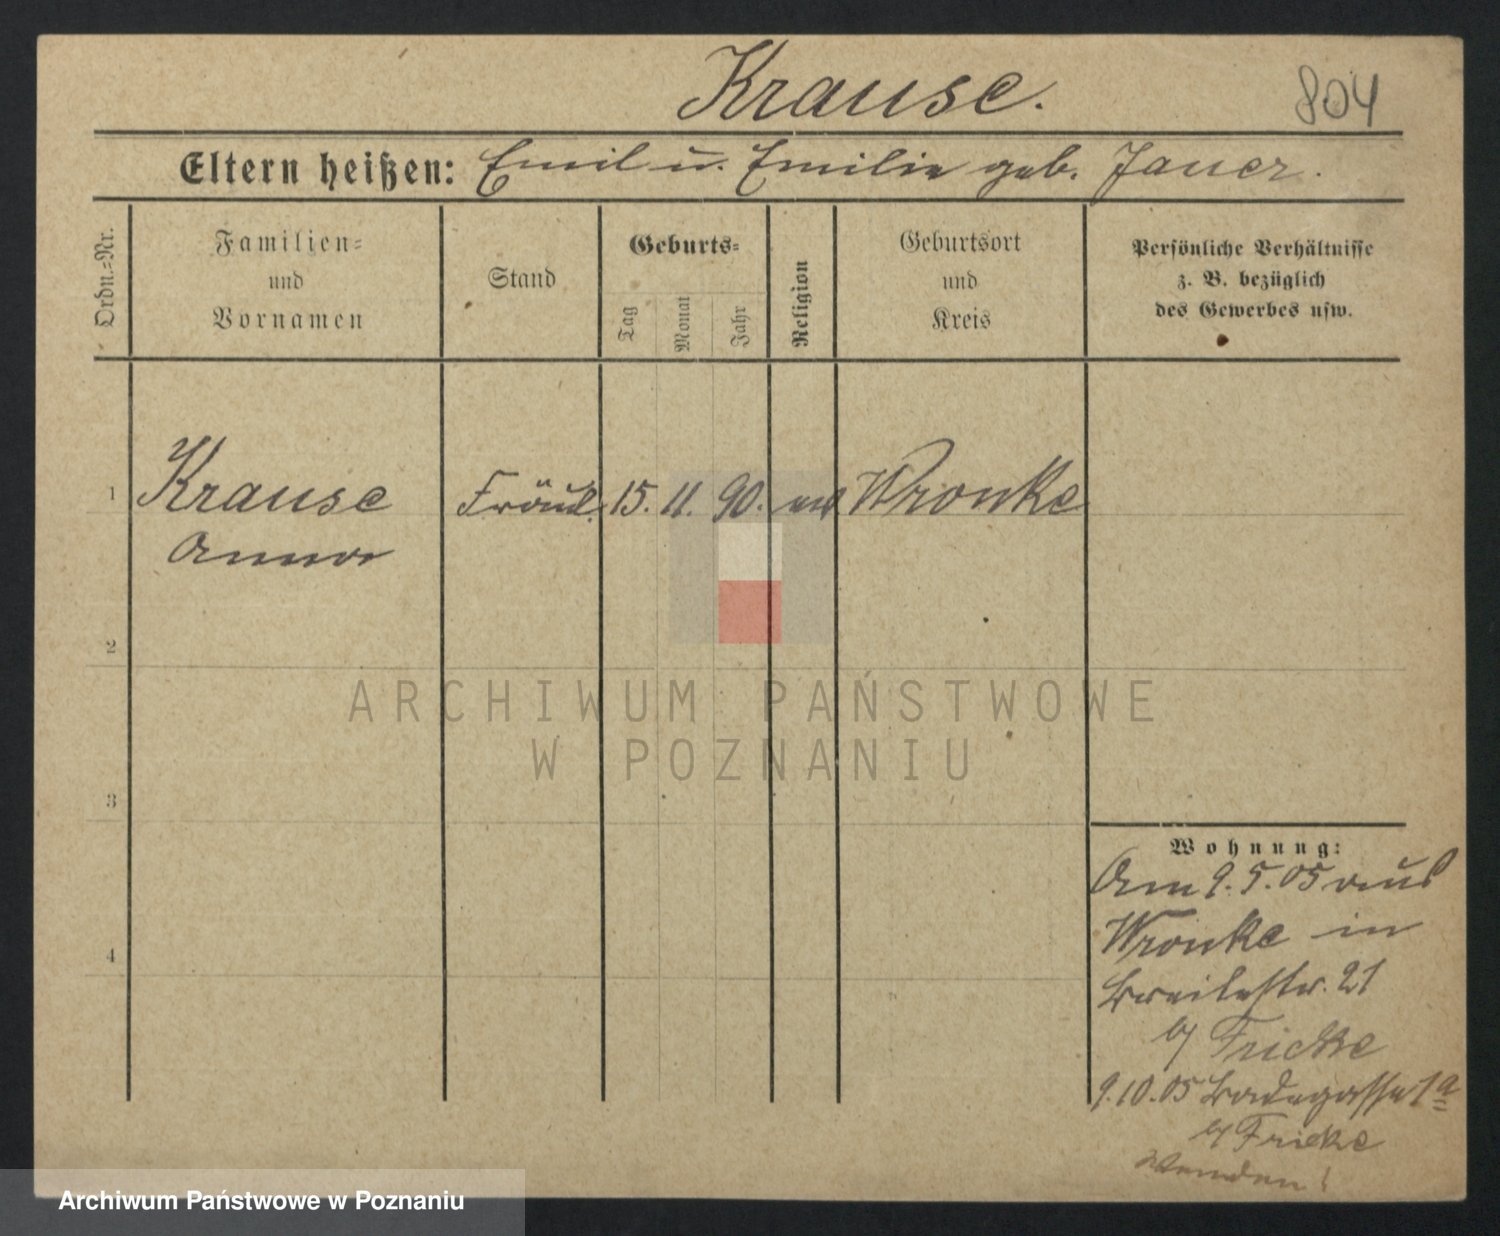 Krause.
804
Eltern heißen: Emil u. Emilie geb. Jauer.
Ordn.-Nr.
Familien-
und
Vornamen
Stand
Geburts-
Tag
Monat
Jahr
Religion
Geburtsort
und
Kreis
Persönliche Verhältnisse
z. B. bezüglich
des Gewerbes usw.
1
Krause
Anna
Fräul.
15. 11. 90.
Wronke
2
3
4
ARCHIWUM PAŃSTWOWE
W POZNANIU
Wohnung:
Am 9.5.05 aus
Wronke in
Breitestr. 21
b/ Fricke
9.10.05 Badegasse 1a
b/ Fricke
Wenden!
Archiwum Państwowe w Poznaniu